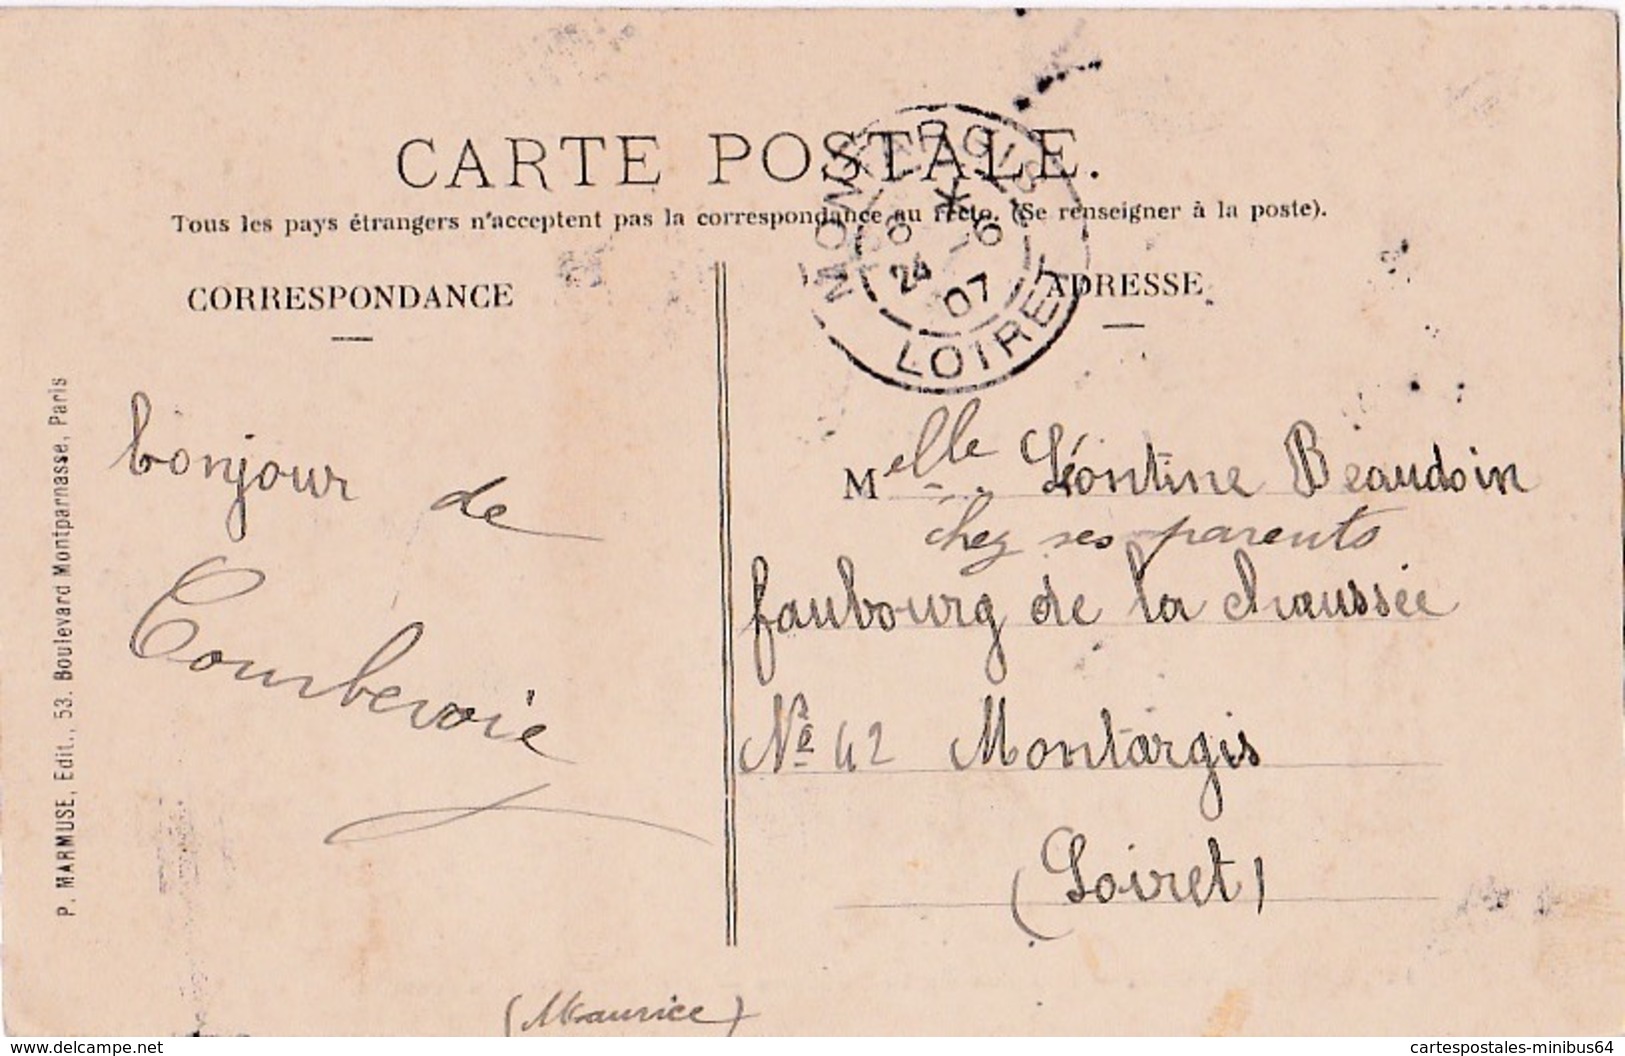 CARTE POSTALE.
Tous les pays étrangers n'acceptent pas la correspondance au recto. (Se renseigner à la poste).
CORRESPONDANCE
ADRESSE
MONTARGIS
6
24 6
07
LOIRET
P. MARMUSE, Edit., 53. Boulevard Montparnasse, Paris
bonjour de
Courbevoie
(Maurice)
Melle Léontine Beaudoin
chez ses parents
faubourg de la chaussée
No 42 Montargis
(Loiret)
www.delcampe.net
cartespostales-minibus64